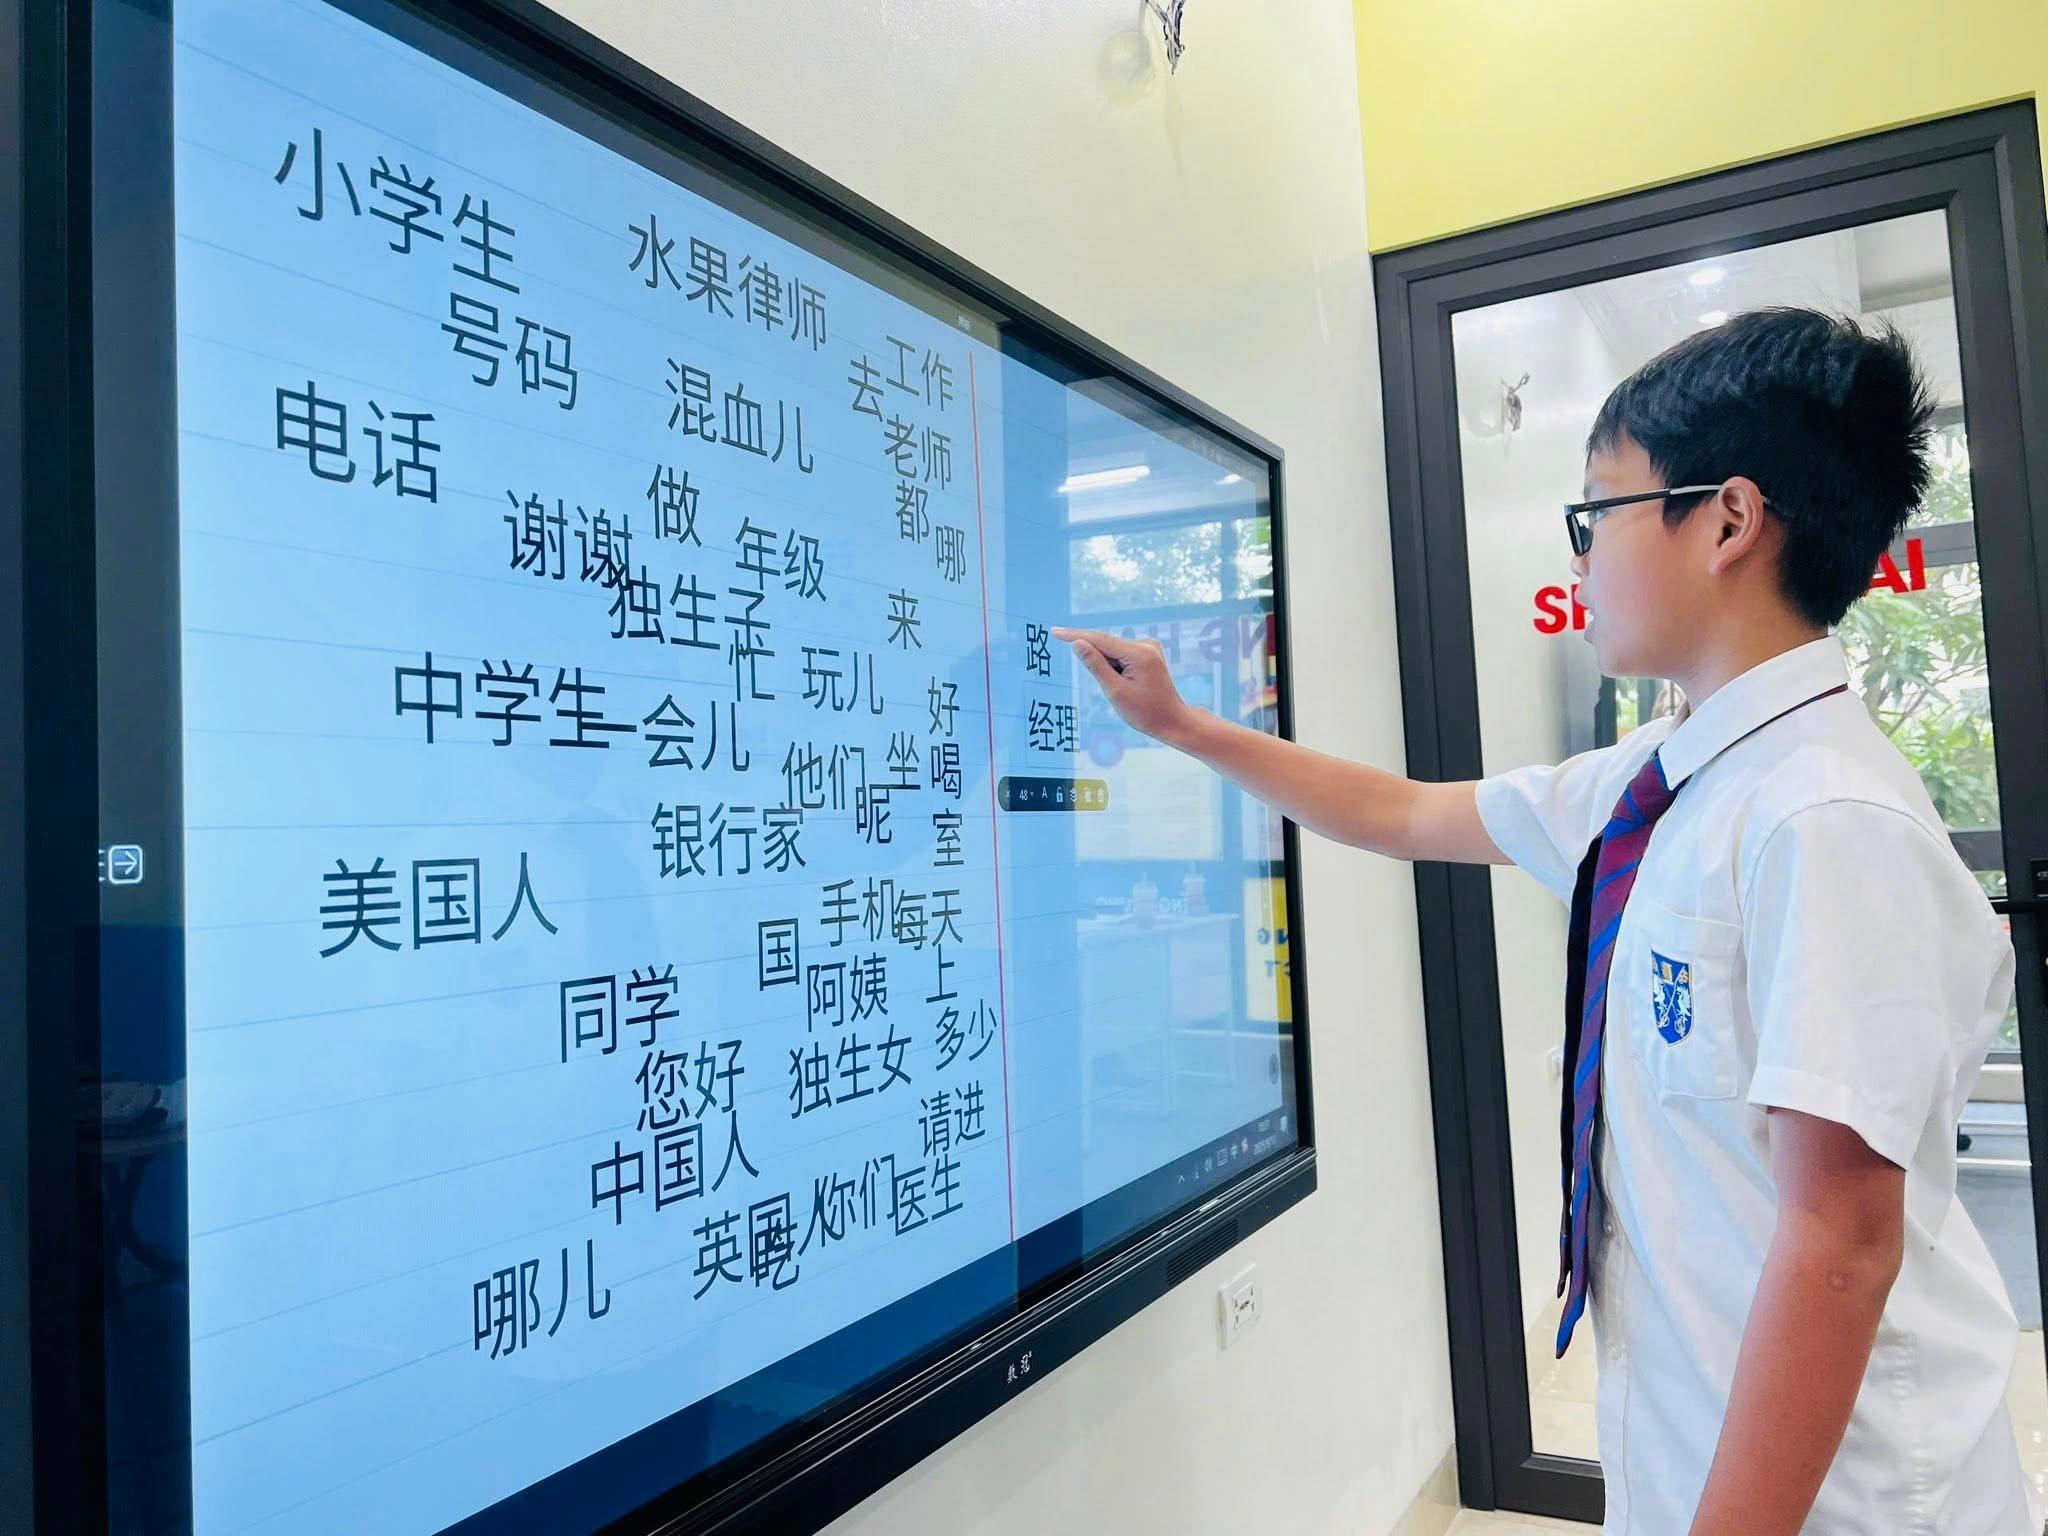 小学生
水果律师
号码
工作
去
混血儿
电话
老师
做
都
谢谢
年级
哪
独生子
来
忙
玩儿
路
中学生
一会儿
好
经理
他们
坐
喝
48
A
呢
银行家
室
美国人
手机
每天
国
阿姨
上
同学
多少
您好
独生女
请进
中国人
你们
医生
英国人
吃
哪儿
数冠